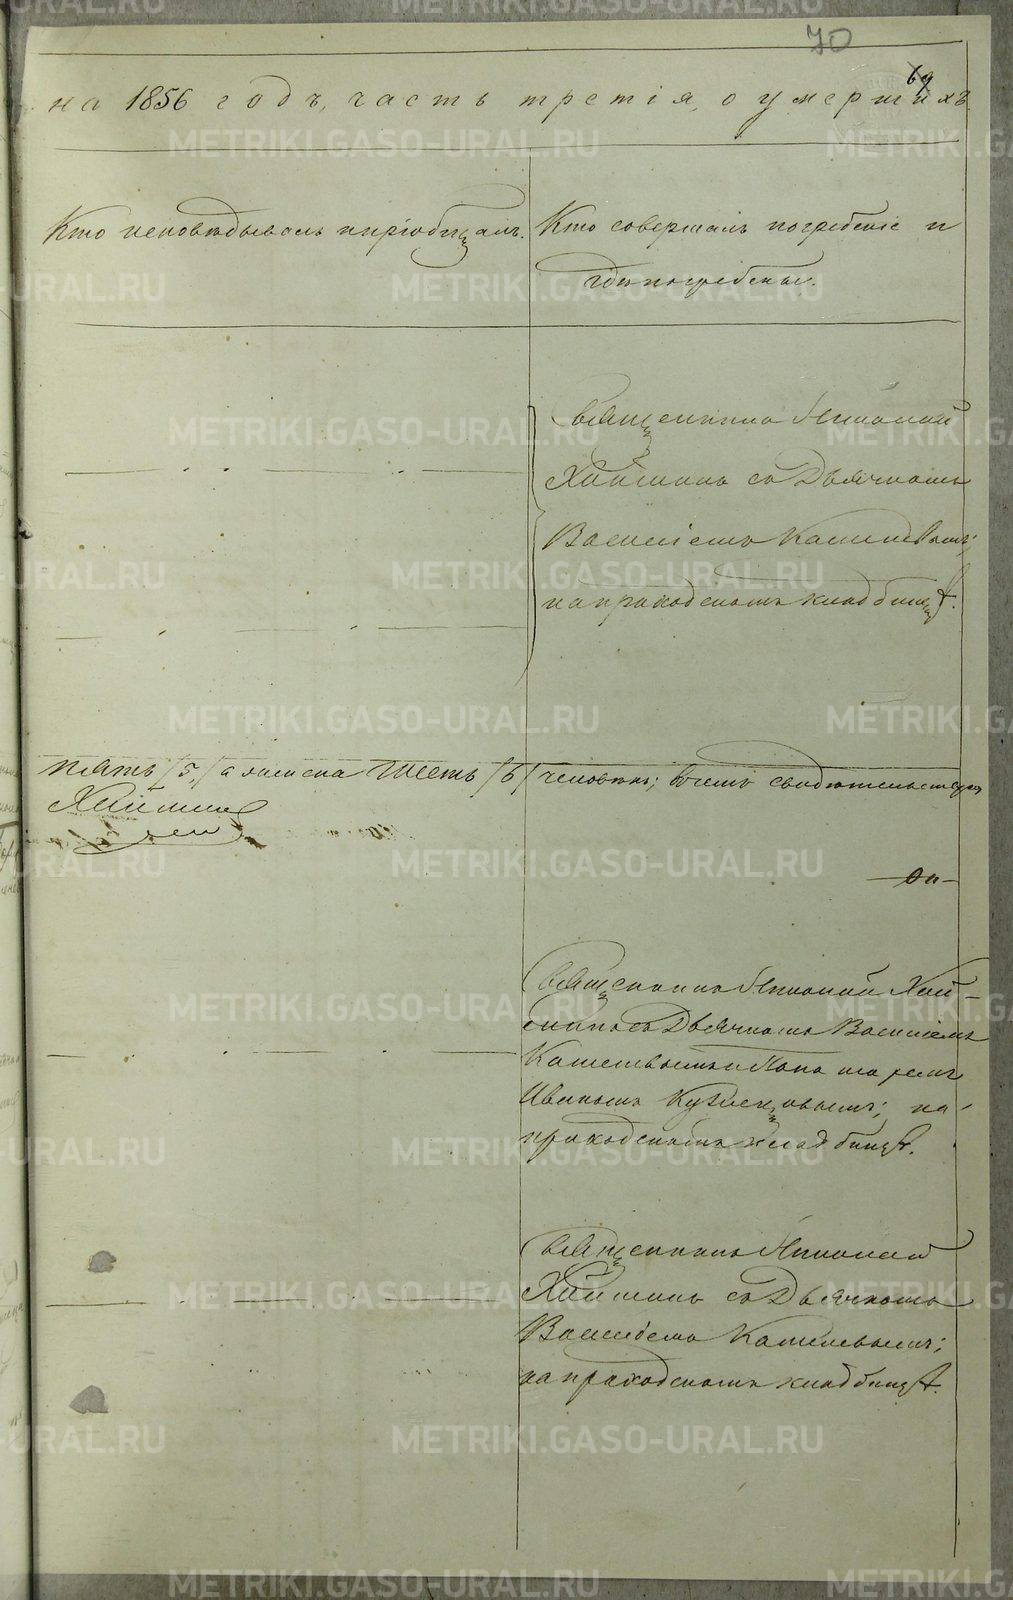 70
69
на 1856 годъ, часть третія, о умершихъ
Кто исповѣдывалъ и пріобщалъ.
Кто совершалъ погребеніе и
гдѣ погребены.
Священникъ Николай
Хайминъ съ Дьячкомъ
Василіемъ
на приходскомъ кладбищѣ.
пять /5/, а женска шесть /6/ человѣкъ; въ чемъ свидѣтельствуютъ
Священникъ Николай Хай-
минъ съ Дьячкомъ Василіемъ
и Пономаремъ
Иваномъ на
приходскомъ кладбищѣ.
Священникъ Николай
Хайминъ съ Дьячкомъ
Василіемъ
на приходскомъ кладбищѣ.
METRIKI.GASO-URAL.RU